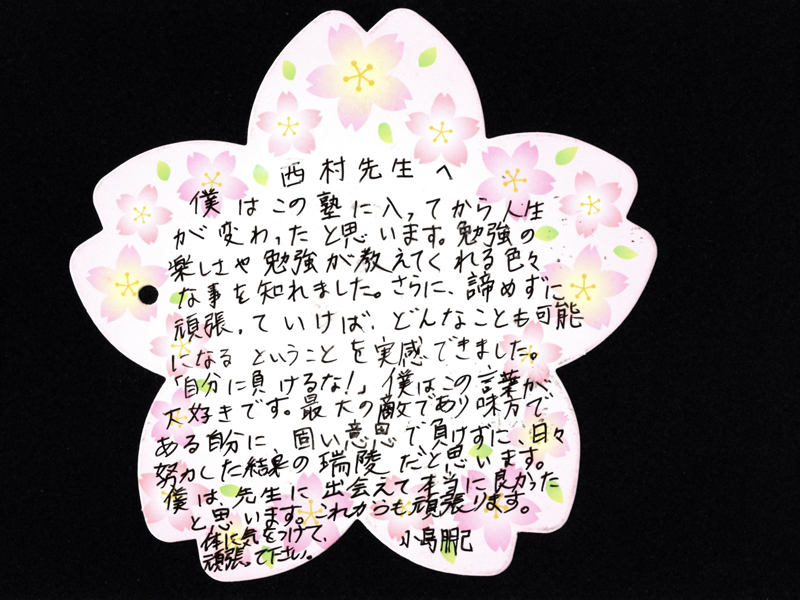 西村先生へ
僕はこの塾に入ってから人生
が変わったと思います。勉強の
楽しさや勉強が教えてくれる色々
な事を知れました。さらに、諦めずに
頑張っていけば、どんなことも可能
になるということを実感できました。
「自分に負けるな!」僕はこの言葉が
大好きです。最大の敵であり味方で
ある自分に、固い意思で負けずに、日々
努力した結果の瑞陵だと思います。
僕は、先生に出会えて本当に良かった
と思います。これからも頑張ります。
体に気をつけて、
頑張って下さい。
小島朋己